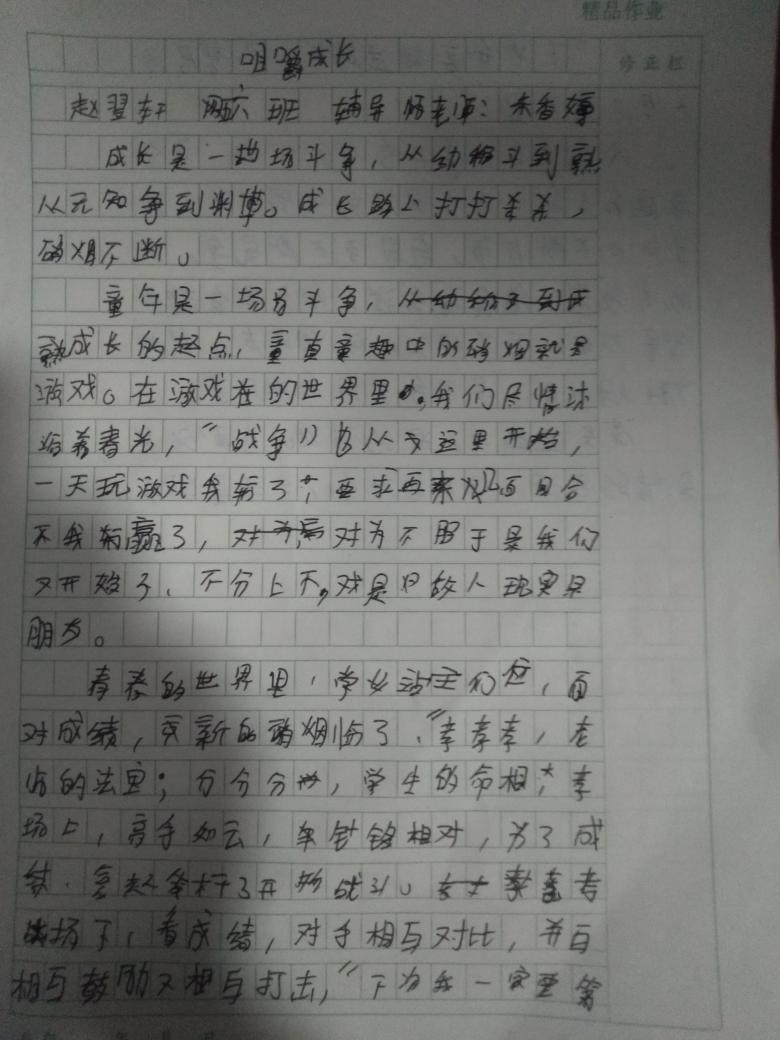 精品作业
修正栏
咀嚼成长
赵翌轩 班 辅导老师:朱香婷
成长是一场斗争,从幼稚斗到熟
从无知争到渊博。成长路上打打关关,
硝烟不断。
童年是一场斗争,从幼稚
成长的起点,童真童趣中的硝烟就是
游戏。在游戏的世界里,我们尽情沐
浴着春光,“战争”从这里开始,
一天玩游戏我输了,要求再来
我赢了,对方不服于是我们
又开始了,不分上下,戏是敌人现实是
朋友。
青春的世界里,学业站主们位,面
对成绩,新的硝烟临了,“考考考,老
师的法宝;分分分,学生的命根,”考
场上,高手如云,针锋相对,为了成
绩,拿起笔杆子开始战斗。考
场下,看成绩,对手相互对比,并百
相互鼓励又相互打击,“下为我一定要第